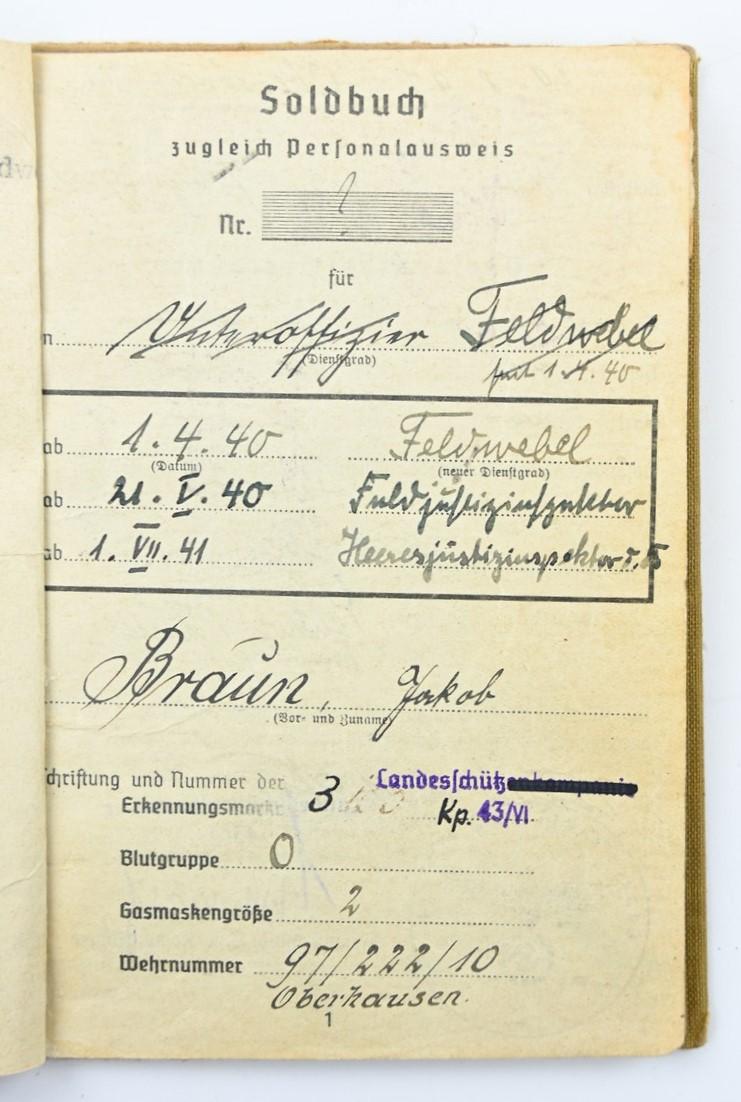 Soldbuch
zugleich Personalausweis
Nr.
für
n Unteroffizier Feldwebel
(Dienstgrad)
1.4.40
ab 1.4.40 Feldwebel
(Datum) (neuer Dienstgrad)
ab 21.V.40 Feldjustizinspektor
ab 1.VII.41 Heeresjustizinspektor
Braun, Jakob
(Vor- und Zuname)
chriftung und Nummer der Landesschützenkompanie
Erkennungsmarke 3 Kp. 43/VI
Blutgruppe O
Gasmaskengröße 2
Wehrnummer 97/222/10
Oberhausen.
1